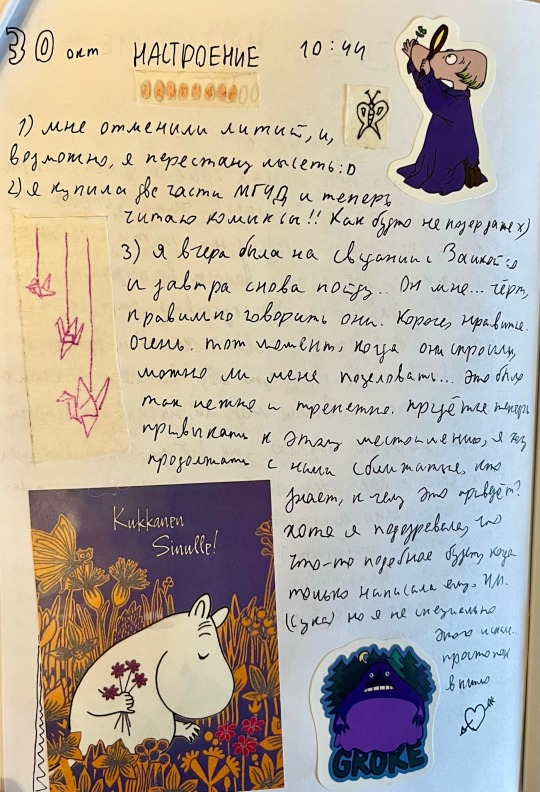 30 окт НАСТРОЕНИЕ 10:44
1) мне отменили литий, и,
возможно, я перестану лысеть:D
2) я купила две части МГЧД и теперь
читаю комиксы!! Как будто не позер даже х)
3) я вчера была на свидании с
и завтра снова пойду... Он мне... чёрт,
правильно говорить они. Короче, нравится.
Очень. тот момент, когда они спросили,
можно ли меня поцеловать... это было
так нежно и трепетно. придётся теперь
привыкать к этому местоимению, я
продолжать с ними сближаться, кто
знает, к чему это приведёт?
хотя я подозревала, что
что-то подобное будет, когда
только написала ему. ИМ.
(сука) но я не специально
этого
Kukkanen
Sinulle!
GROKE